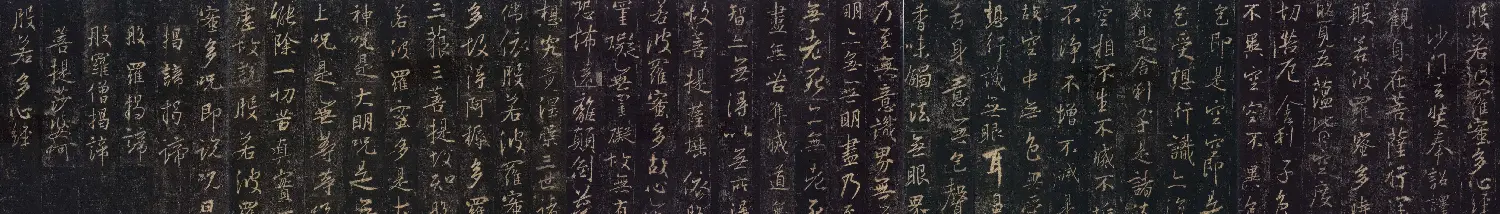 般若波羅蜜多心經
沙門玄奘奉詔譯
觀自在菩薩行深
般若波羅蜜多時
照見五蘊皆空度
切苦厄舍利子色
不異空空不異色
色即是空空即是
色受想行識亦復
如是舍利子是諸法
空相不生不滅不垢
不淨不增不減是
故空中無色無受
想行識無眼耳鼻
舌身意無色聲
香味觸法無眼界
乃至無意識界無
明亦無無明盡乃至
無老死亦無老死
盡無苦集滅道無
智亦無得以無所得
故菩提薩埵依般
若波羅蜜多故心無
罣礙無罣礙故無有
恐怖遠離顛倒夢
想究竟涅槃三世諸
佛依般若波羅蜜
多故得阿耨多羅
三藐三菩提故知般
若波羅蜜多是大
神咒是大明咒是無
上咒是無等等咒
能除一切苦真實
虛故說般若波羅
蜜多咒即說咒曰
揭諦揭諦
般羅揭諦
般羅僧揭諦
菩提莎婆呵
般若多心經